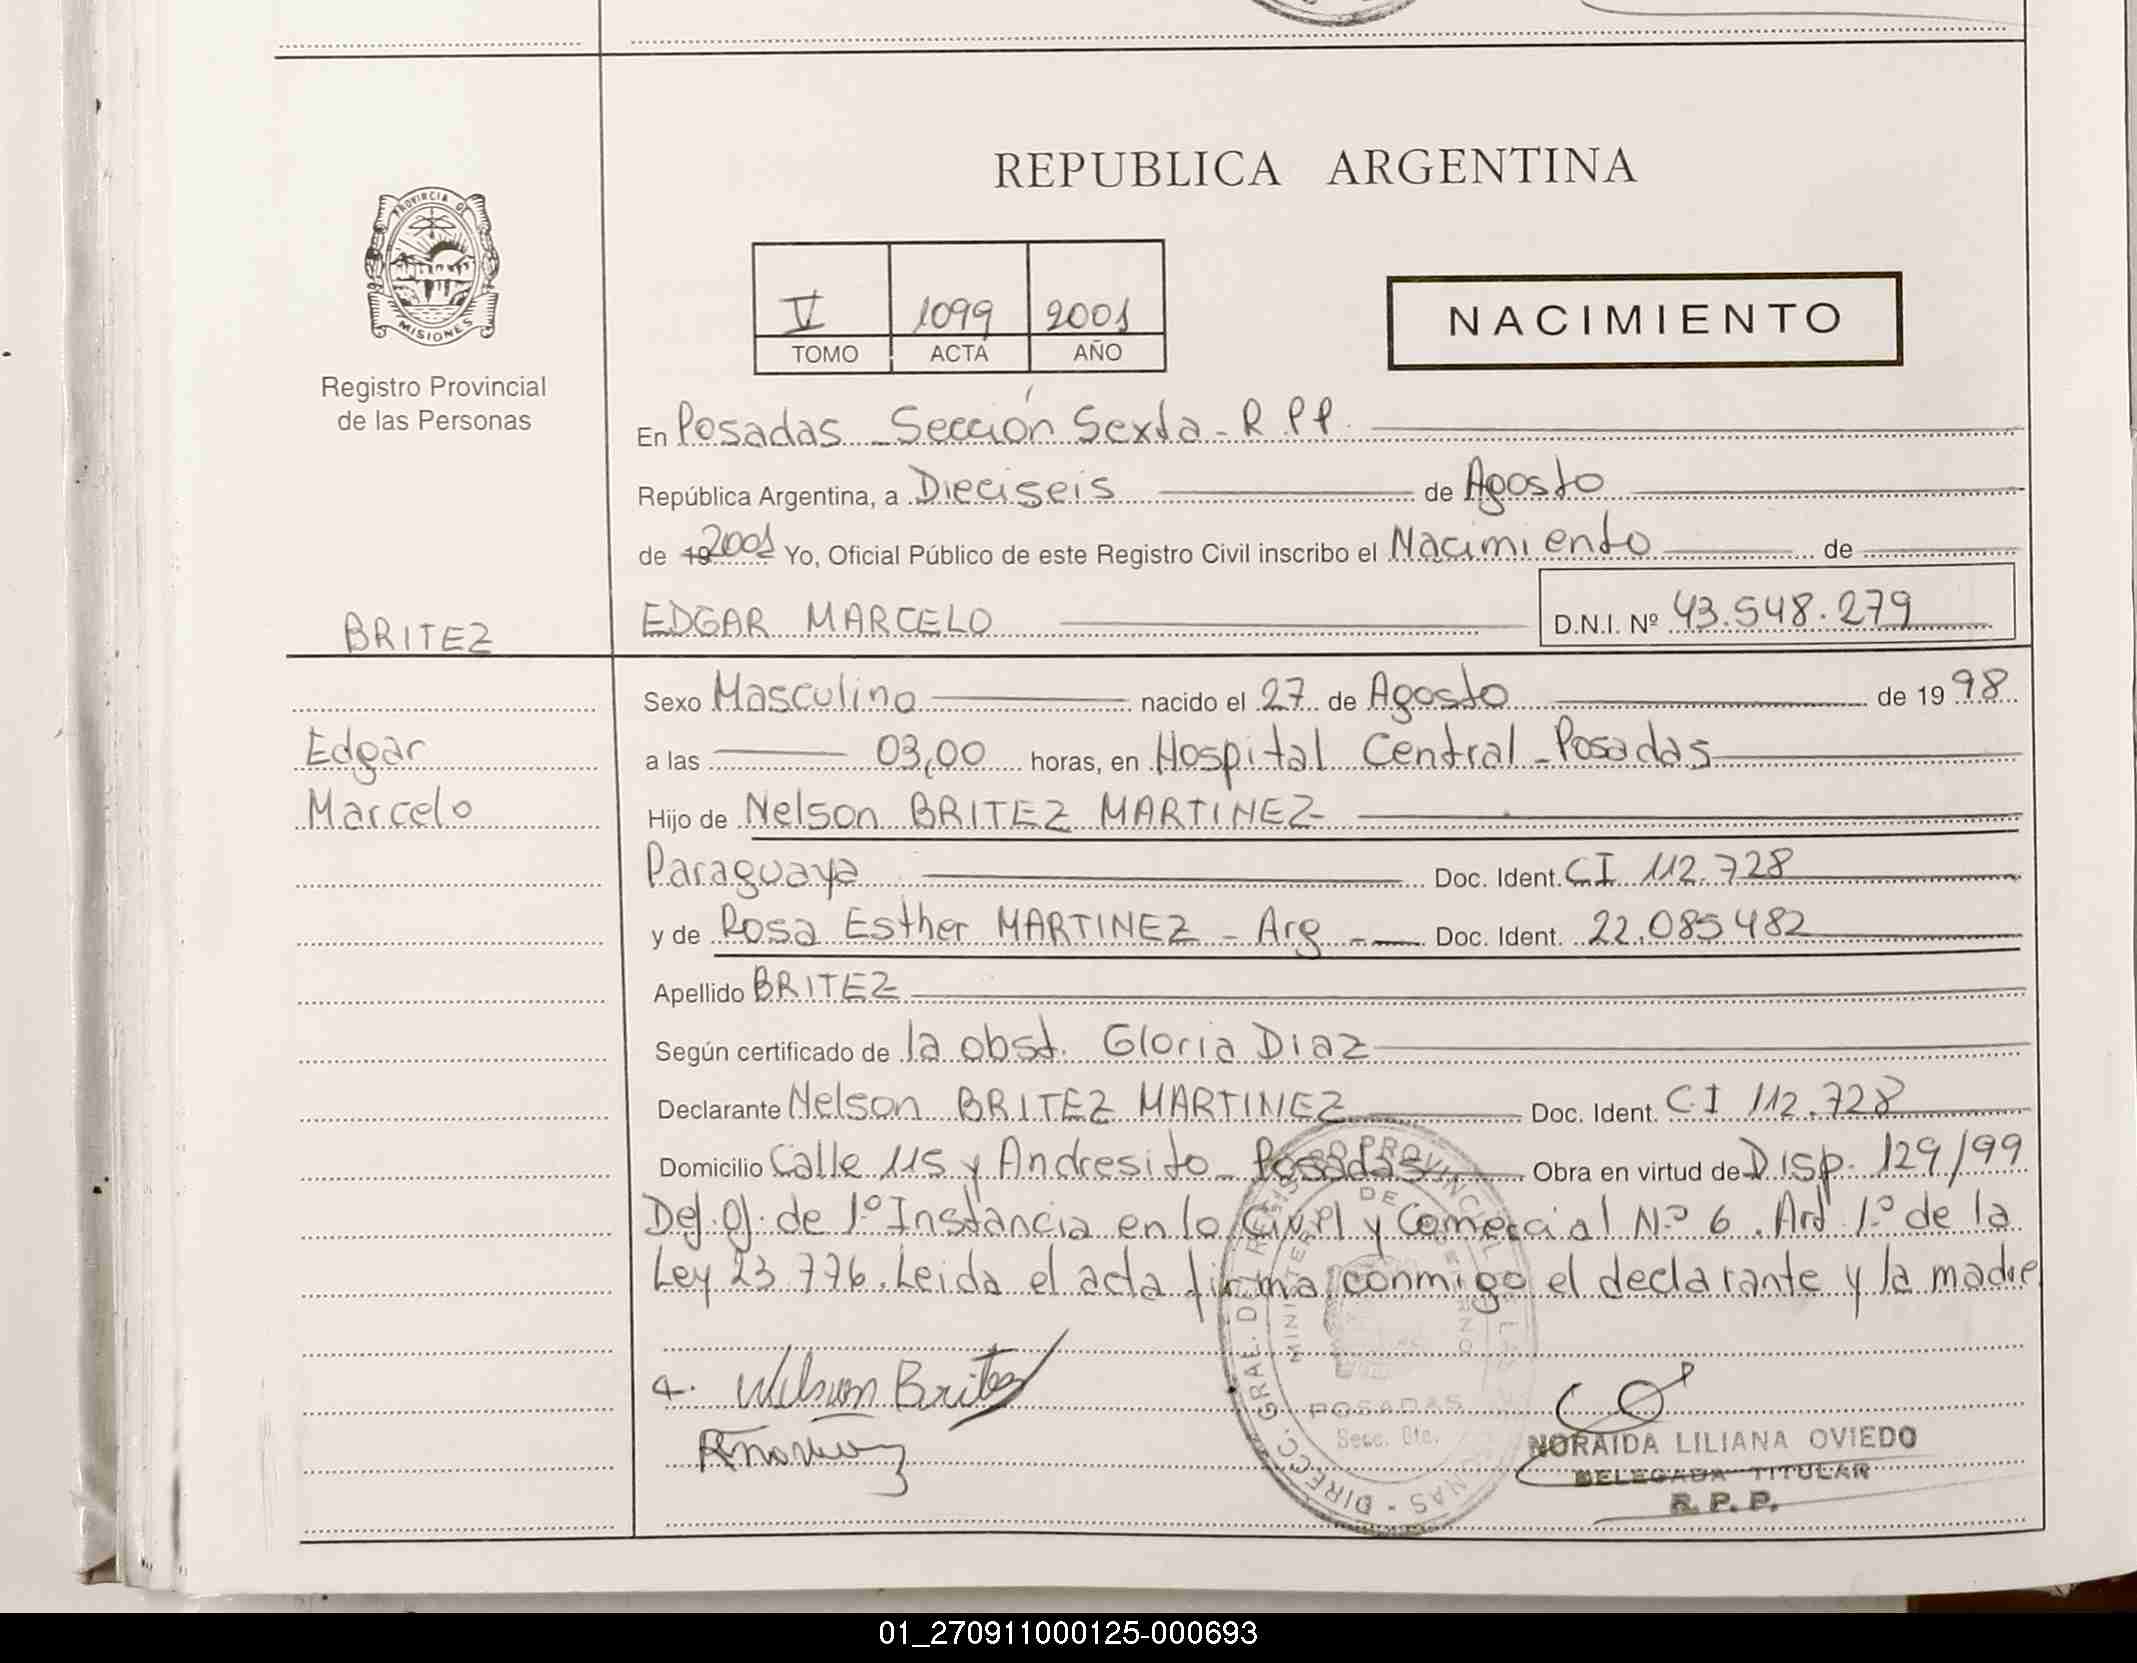 REPUBLICA ARGENTINA
PROVINCIA DE
MISIONES
Registro Provincial
de las Personas
V 1099 2001
TOMO ACTA AÑO
NACIMIENTO
En Posadas - Sección Sexta - R P P.
República Argentina, a Dieciseis de Agosto
de 19 2001 Yo, Oficial Público de este Registro Civil inscribo el Nacimiento de
BRITEZ
EDGAR MARCELO D.N.I. Nº 43.548.279
Sexo Masculino nacido el 27 de Agosto de 1998
Edgar
a las 03,00 horas, en Hospital Central - Posadas
Marcelo
Hijo de Nelson BRITEZ MARTINEZ
Paraguaya Doc. Ident. CI 112.728
y de Rosa Esther MARTINEZ - Arg - Doc. Ident. 22.085482
Apellido BRITEZ
Según certificado de la obst. Gloria Diaz
Declarante Nelson BRITEZ MARTINEZ Doc. Ident. C.I 112.728
Domicilio Calle 115 y Andresito - Posadas Obra en virtud de Disp. 129/99
Def. Of. de 1º Instancia en lo Civil y Comercial N.º 6. Art 1.º de la
Ley 23.776. Leida el acta firma conmigo el declarante y la madre
DIRECC. GRAL. DEL REGISTRO PROVINCIAL
MINISTERIO DE GOBIERNO
POSADAS
Secc. 6ta.
NORAIDA LILIANA OVIEDO
DELEGADA TITULAR
R. P. P.
01_270911000125-000693